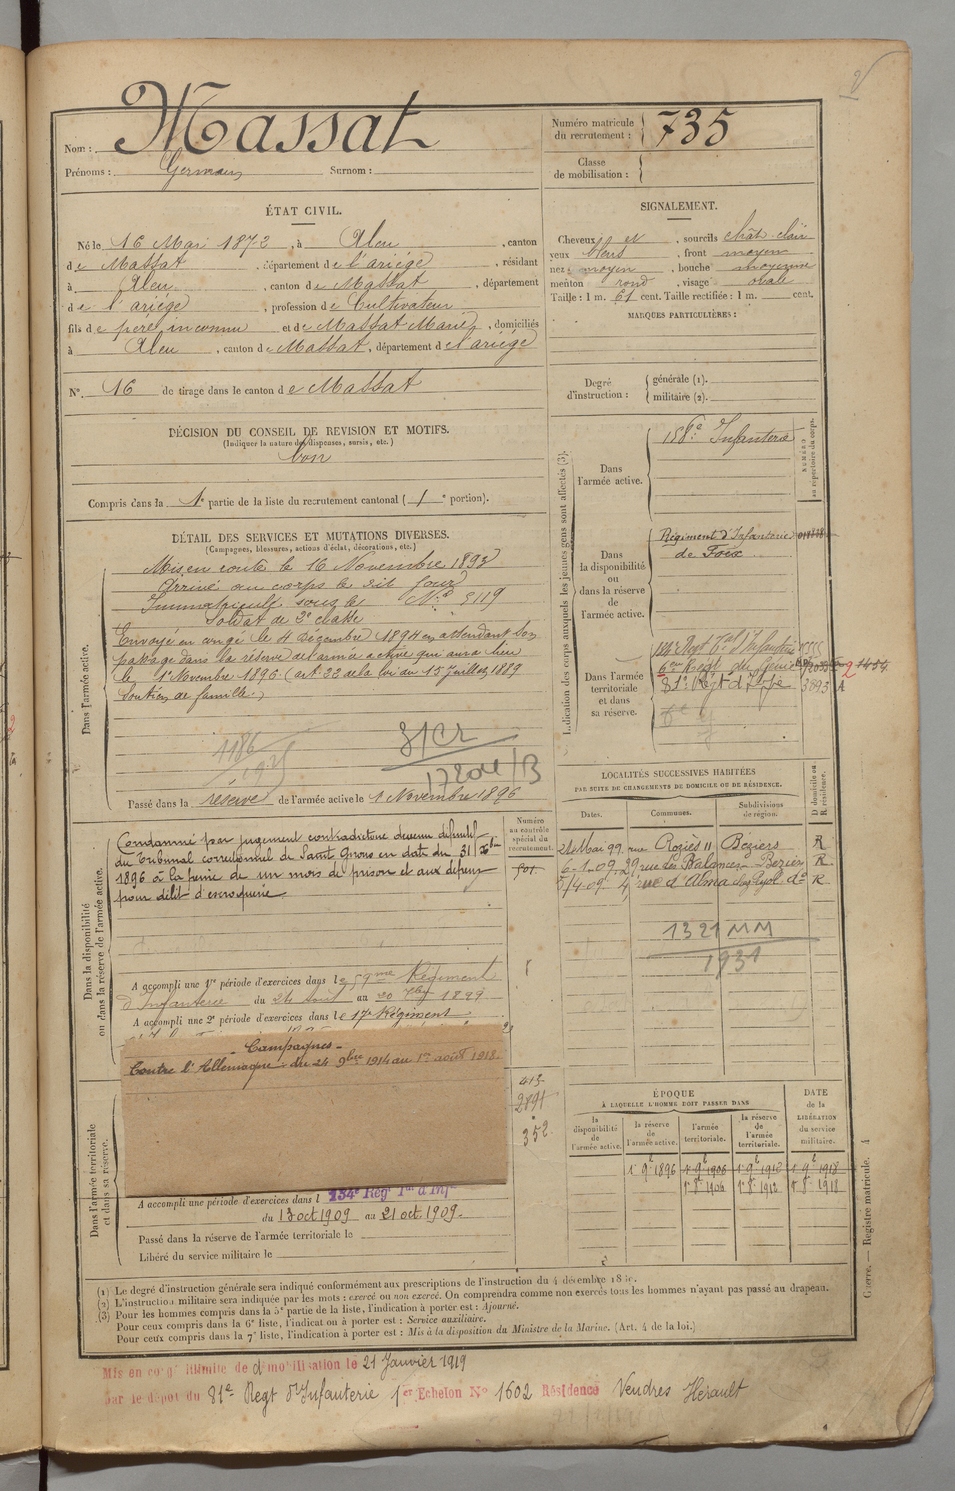 Nom : Massat
Prénoms : Germain Surnom :
Numéro matricule du recrutement : 735
Classe de mobilisation :
ÉTAT CIVIL.
Né le 16 Mai 1872, à Aleu, canton
de Massat, département de l'ariége, résidant
à Aleu, canton de Massat, département
de l'ariége, profession de Cultivateur
fils de père inconnu et de Massat Marie, domiciliés
à Aleu, canton de Massat, département de l'ariége
N° 16 de tirage dans le canton de Massat
DÉCISION DU CONSEIL DE REVISION ET MOTIFS.
(Indiquer la nature des dispenses, sursis, etc.)
bon
Compris dans la 1e partie de la liste du recrutement cantonal (1e portion).
SIGNALEMENT.
Cheveux et, sourcils chât. clair
yeux bleus, front moyen
nez moyen, bouche moyenne
menton rond, visage ovale
Taille : 1 m. 61 cent. Taille rectifiée : 1 m. cent.
MARQUES PARTICULIÈRES :
Degré d'instruction : générale (1).
militaire (2).
DÉTAIL DES SERVICES ET MUTATIONS DIVERSES.
(Campagnes, blessures, actions d'éclat, décorations, etc.)
Dans l'armée active.
Mis en route le 16 Novembre 1893
Arrivé au corps le dit jour
Immatriculé sous le N° 5119
Soldat de 2e classe
Envoyé en congé le 4 Décembre 1894 en attendant son
passage dans la réserve de l'armée active qui aura lieu
le 1er Novembre 1896 (art. 22 de la loi du 15 juillet 1889
Soutien de famille)
1186
Passé dans la réserve de l'armée active le 1 Novembre 1896
Indication des corps auxquels les jeunes gens sont affectés (3).
NUMÉRO au répertoire du corps.
Dans l'armée active.
Infanterie
Dans la disponibilité ou dans la réserve de l'armée active.
Régiment d'Infanterie
de Foix
Dans l'armée territoriale et dans sa réserve.
6e Regt du Génie
81e Regt d'Infie 3893
LOCALITÉS SUCCESSIVES HABITÉES
PAR SUITE DE CHANGEMENTS DE DOMICILE OU DE RÉSIDENCE.
Dates. Communes. Subdivisions de région. D domicile ou R résidence.
24 Mai 99 rue Roziès 11 Béziers R
6-1-09 29 rue des Balances Beziers R
5/4-09 4, rue d'Alma do R
1321 MM
1931
Dans la disponibilité ou dans la réserve de l'armée active.
Numéro au contrôle spécial du recrutement.
Condamné par jugement contradictoire devenu définitif
du Tribunal correctionnel de Saint Girons en date du 31 Xbre
1896 à la peine de un mois de prison et aux dépens
pour délit d'escroquerie
A accompli une 1re période d'exercices dans le 59me Régiment
d'Infanterie du 24 août au 20 7bre 1899
A accompli une 2e période d'exercices dans le 17e Régiment
- Campagnes -
Contre l'Allemagne : du 24 9bre 1914 au 1er août 1918.
413
2891
352
Dans l'armée territoriale et dans sa réserve.
A accompli une période d'exercices dans l 134e Régt Tal d'Infie
du 13 oct 1909 au 21 oct 1909.
Passé dans la réserve de l'armée territoriale le
Libéré du service militaire le
ÉPOQUE
À LAQUELLE L'HOMME DOIT PASSER DANS
la disponibilité de l'armée active. la réserve de l'armée active. l'armée territoriale. la réserve de l'armée territoriale.
DATE de la LIBÉRATION du service militaire.
1er 9e 1896 1er 9e 1906 1er 9e 1912 1er 9e 1918
(1) Le degré d'instruction générale sera indiqué conformément aux prescriptions de l'instruction du 4 décembre
(2) L'instruction militaire sera indiquée par les mots : exercé ou non exercé. On comprendra comme non exercés tous les hommes n'ayant pas passé au drapeau.
(3) Pour les hommes compris dans la 5e partie de la liste, l'indication à porter est : Ajourné.
Pour ceux compris dans la 6e liste, l'indication à porter est : Service auxiliaire.
Pour ceux compris dans la 7e liste, l'indication à porter est : Mis à la disposition du Ministre de la Marine. (Art. 4 de la loi.)
Guerre. — Registre matricule. 4
Mis en congé illimité de démobilisation le 21 Janvier 1919
par le dépôt du 81e Regt d'Infanterie 1er Echelon No 1602 Résidence Vendres Hérault